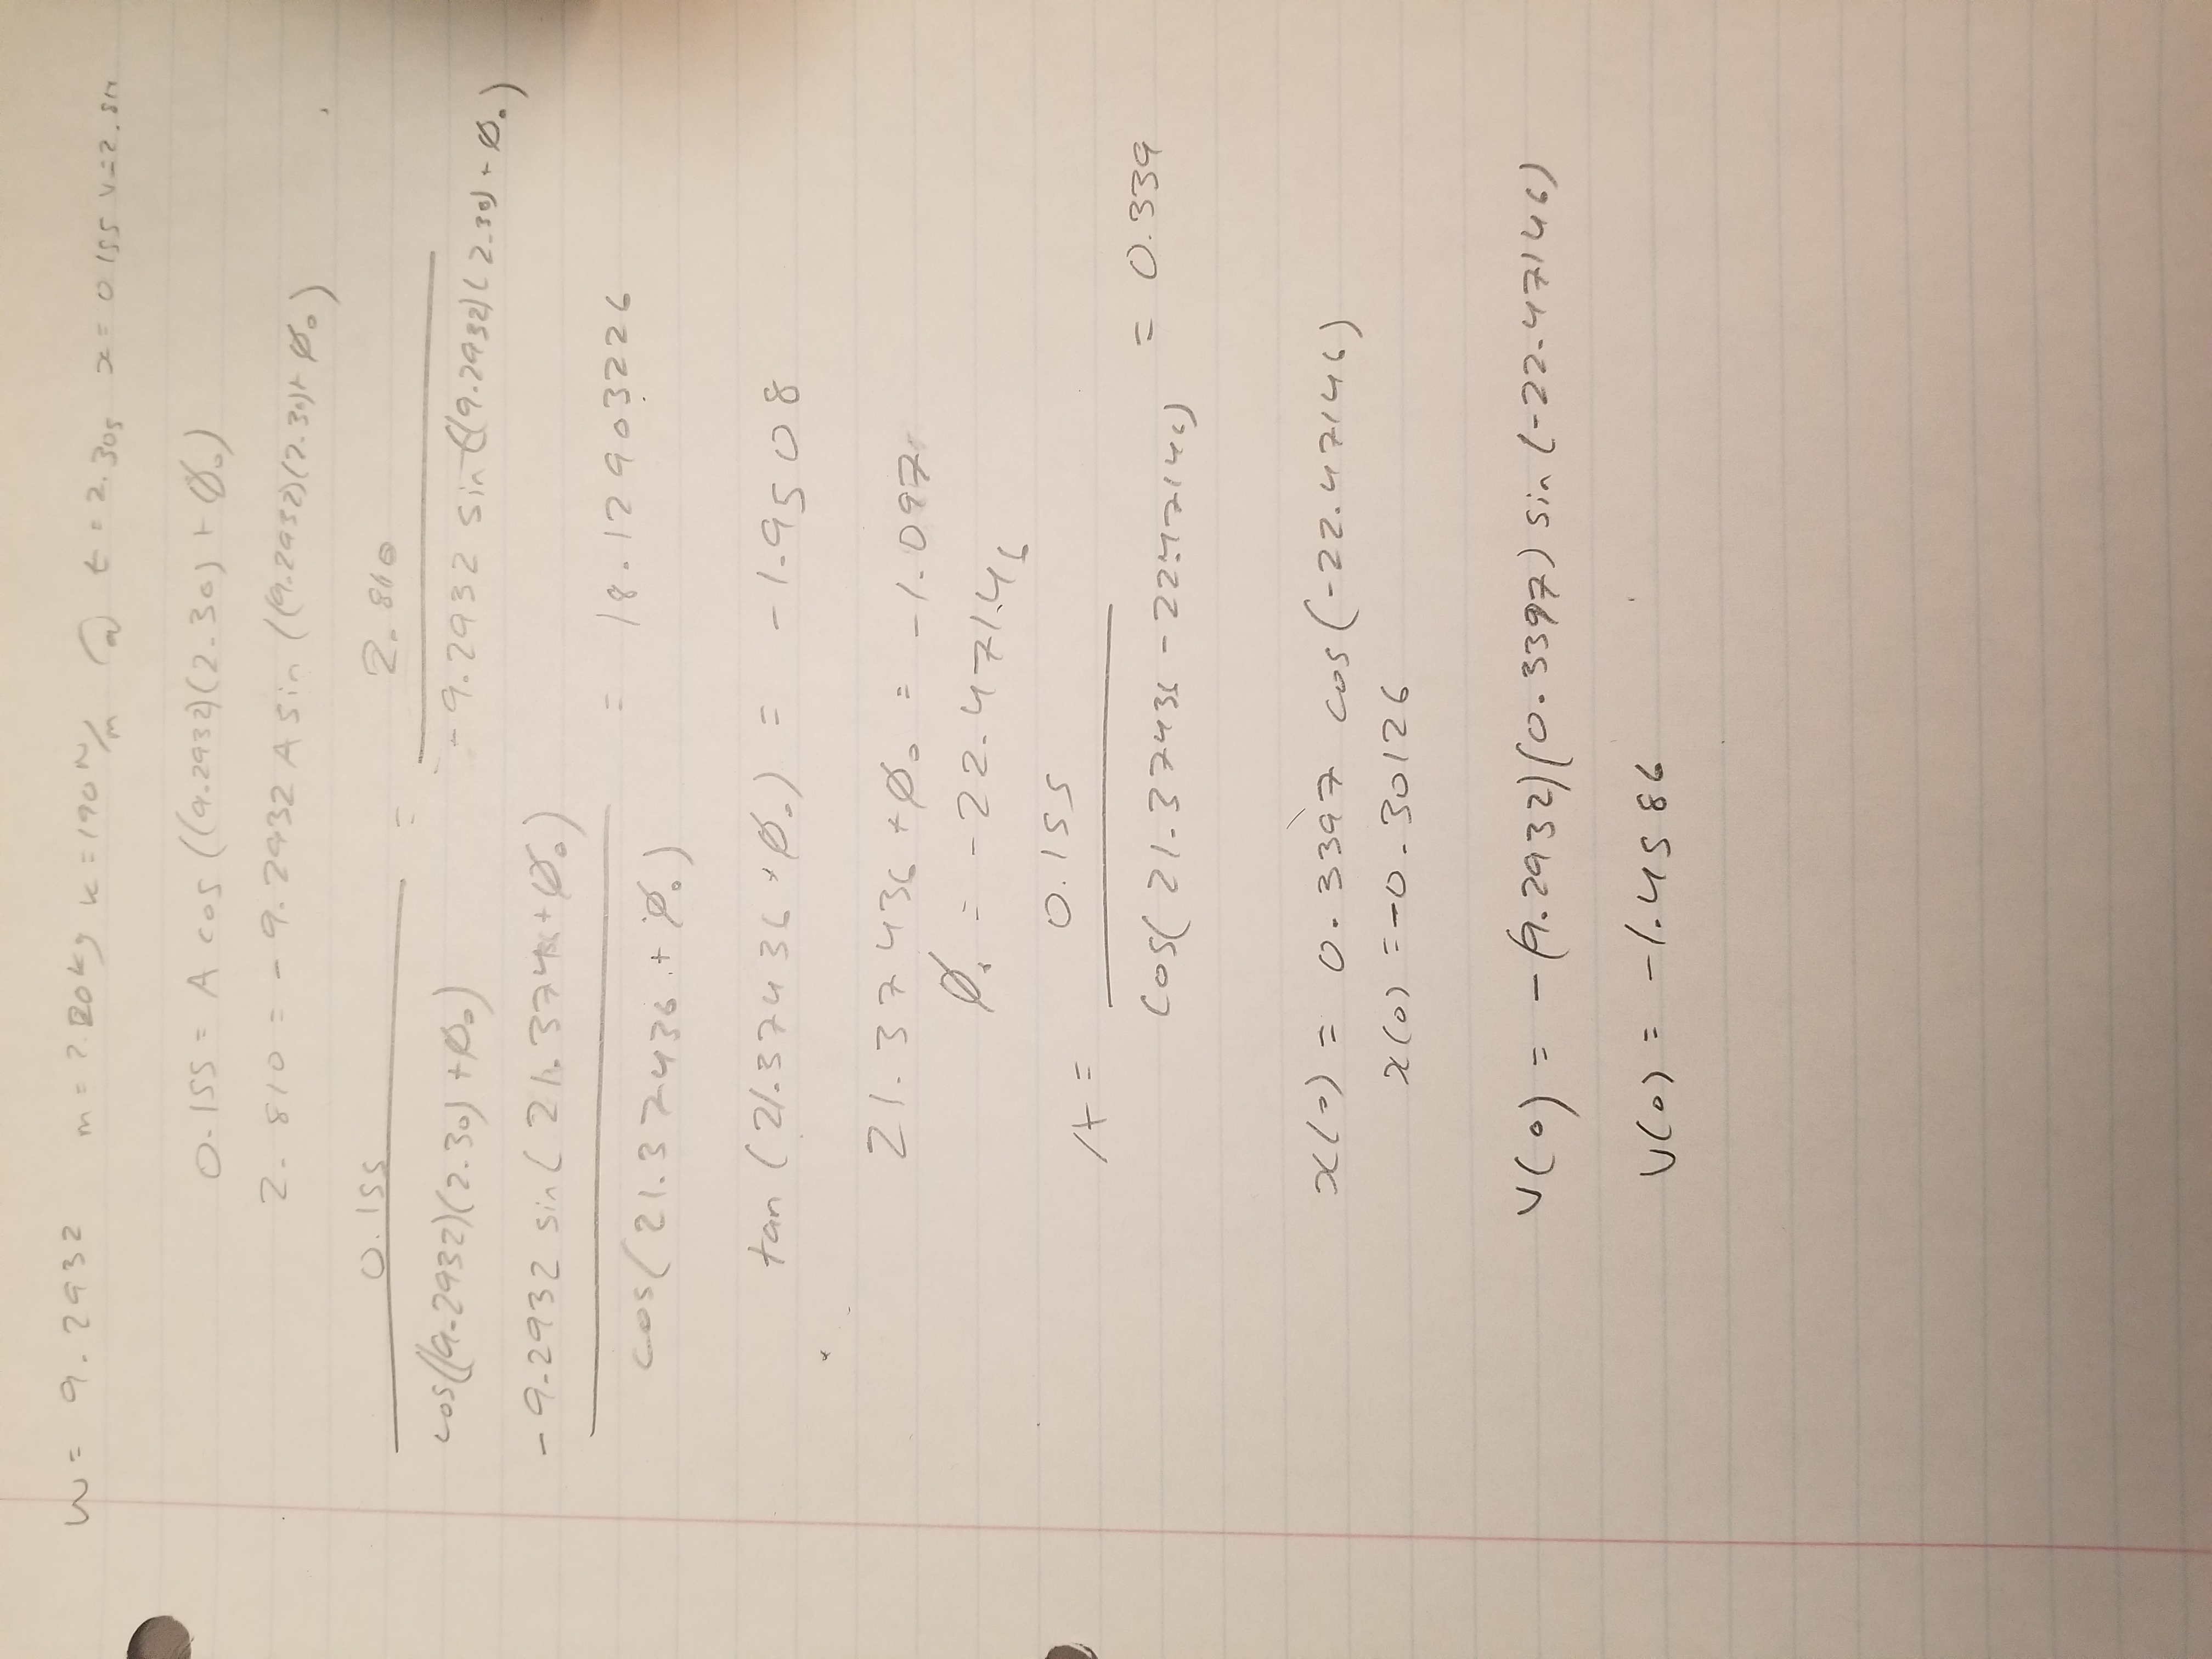 w = 9.2932 m = 2.20kg k = 190 N/m @ t = 2.30s x = 0.155 v = 2.81
0.155 = A cos ((9.2932)(2.30) + Ø₀)
2.810 = - 9.2932 A sin ((9.2932)(2.30)+ Ø₀)
0.155 = 2.810
cos((9.2932)(2.30) + Ø₀) - 9.2932 sin ((9.2932)(2.30) + Ø₀)
- 9.2932 sin( 21.374 + Ø₀)
= 18.12903226
cos( 21.37436 + Ø₀)
tan ( 21.37436 + Ø₀) = - 1.9508
21.37436 + Ø₀ = - 1.097
Ø₀ = - 22.47146
0.155
A =
cos( 21.37436 - 22.47146) = 0.339
x(0) = 0.3397 cos(-22.47146)
x(0) = -0.30126
v(0) = -(9.2932)(0.3397) sin (-22.47146)
v(0) = -1.4586